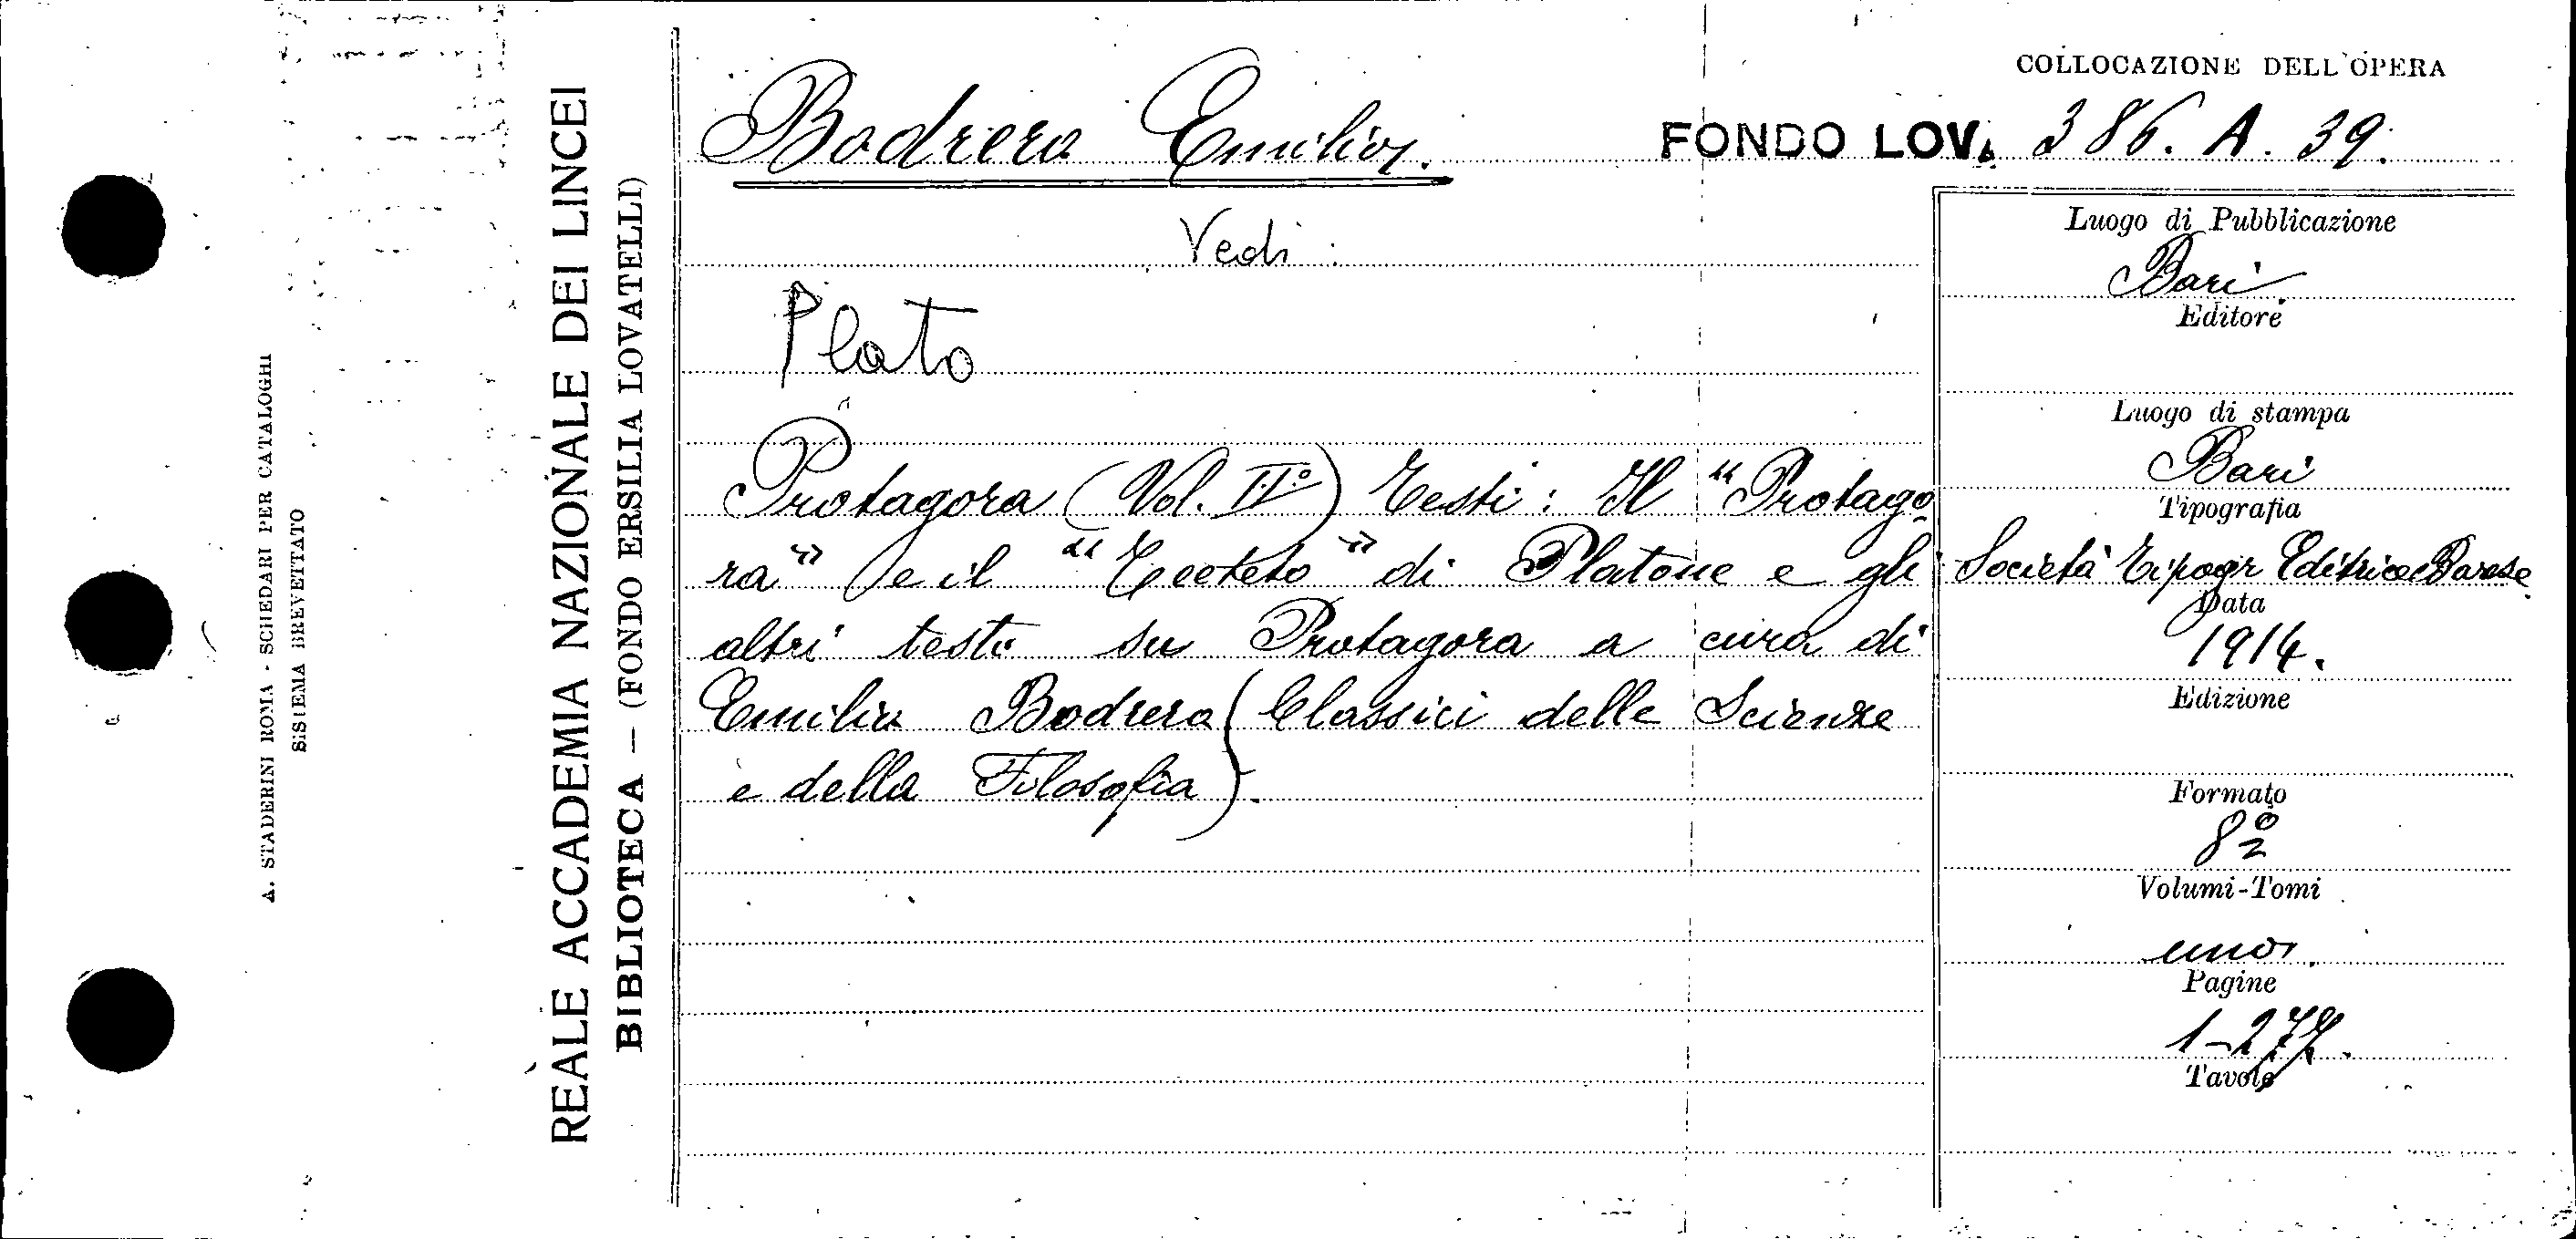 COLLOCAZIONE DELL'OPERA
Bodrero Emilio.
FONDO LOV. 386. A. 39.
Vedi:
Plato
Protagora (Vol. II°) Testi: Il "Protago-
ra" e il "Teeteto" di Platone e gli
altri testi su Protagora a cura di
Emilio Bodrero (Classici delle Scienze
e della Filosofia).
Luogo di Pubblicazione
Bari.
Editore
Luogo di stampa
Bari
Tipografia
Società Tipogr Editrice Barese
Data
1914.
Edizione
Formato
8°
Volumi-Tomi
uno.
Pagine
1-277.
Tavole
REALE ACCADEMIA NAZIONALE DEI LINCEI
BIBLIOTECA — (FONDO ERSILIA LOVATELLI)
A. STADERINI ROMA - SCHEDARI PER CATALOGHI
SISTEMA BREVETTATO